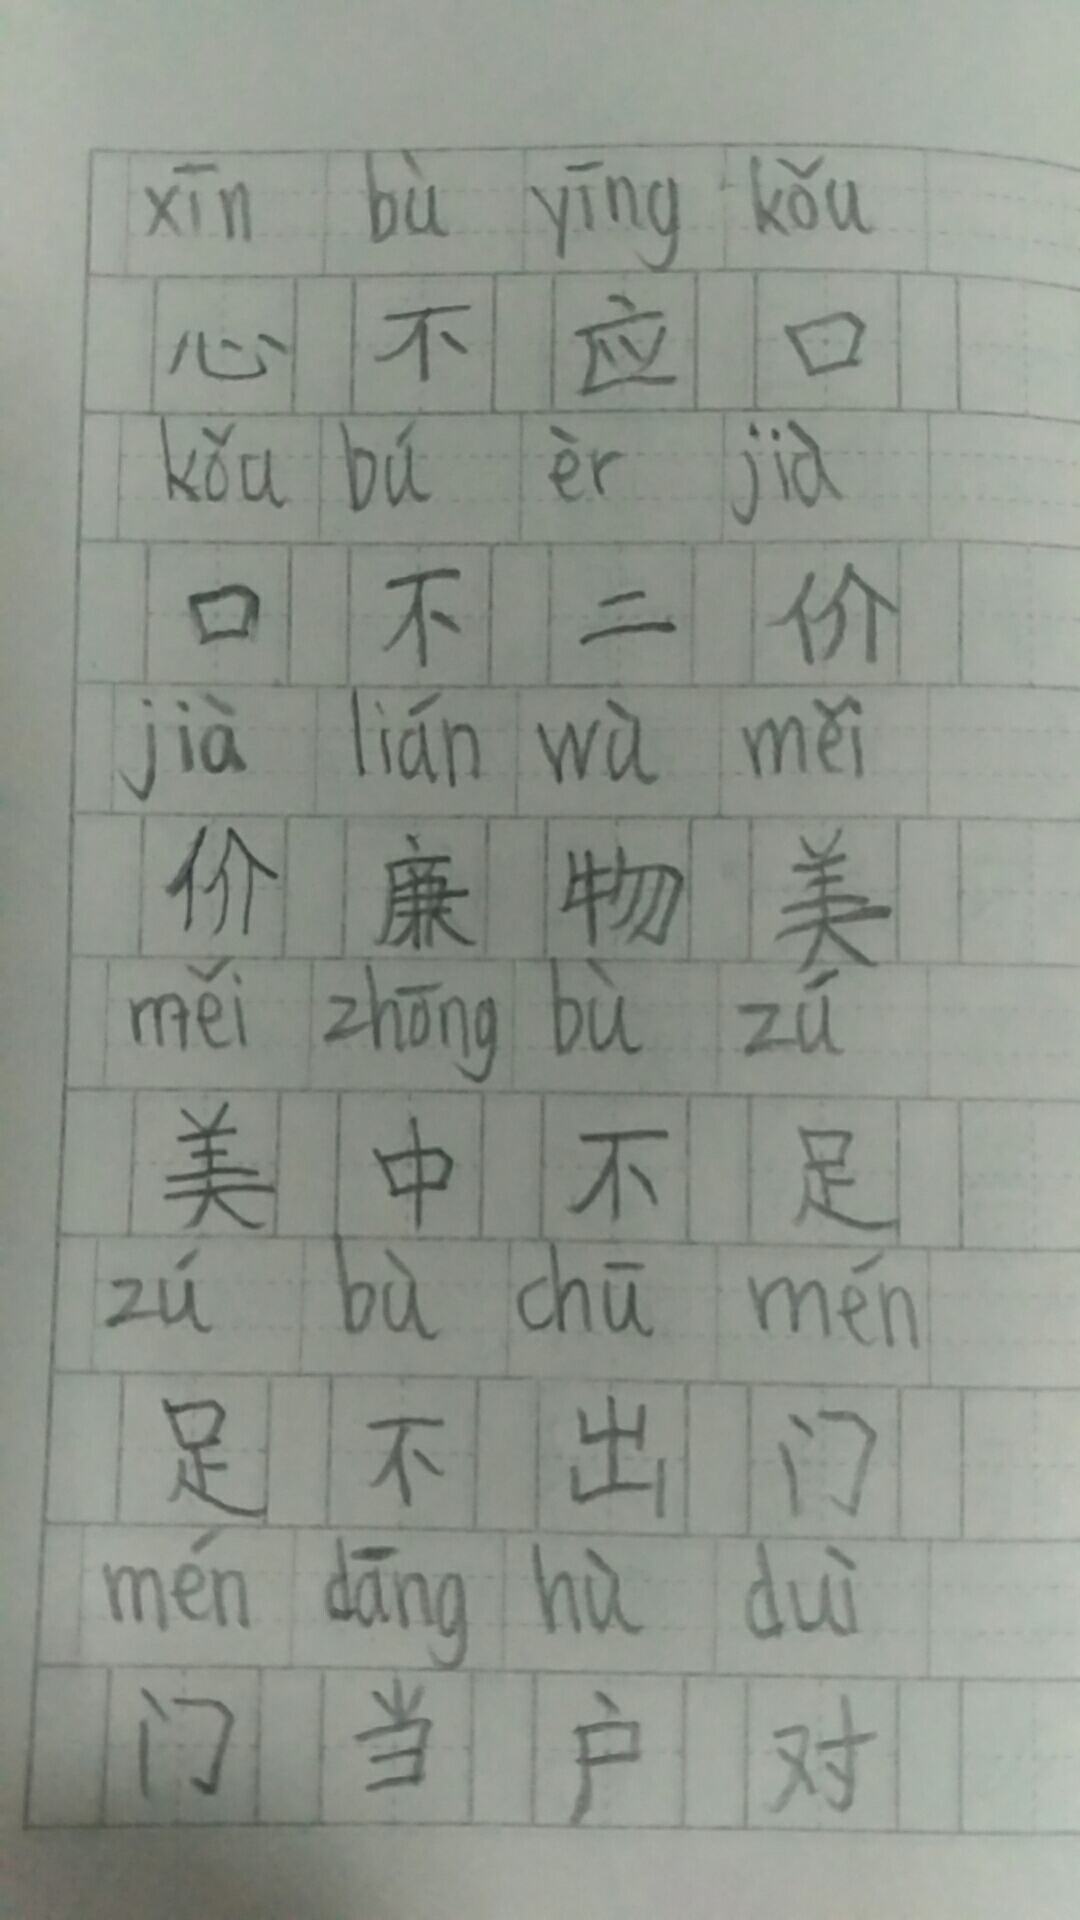 xīn bù yīng kǒu
心不应口
kǒu bú èr jià
口不二价
jià lián wù měi
价廉物美
měi zhōng bù zú
美中不足
zú bù chū mén
足不出门
mén dāng hù duì
门当户对